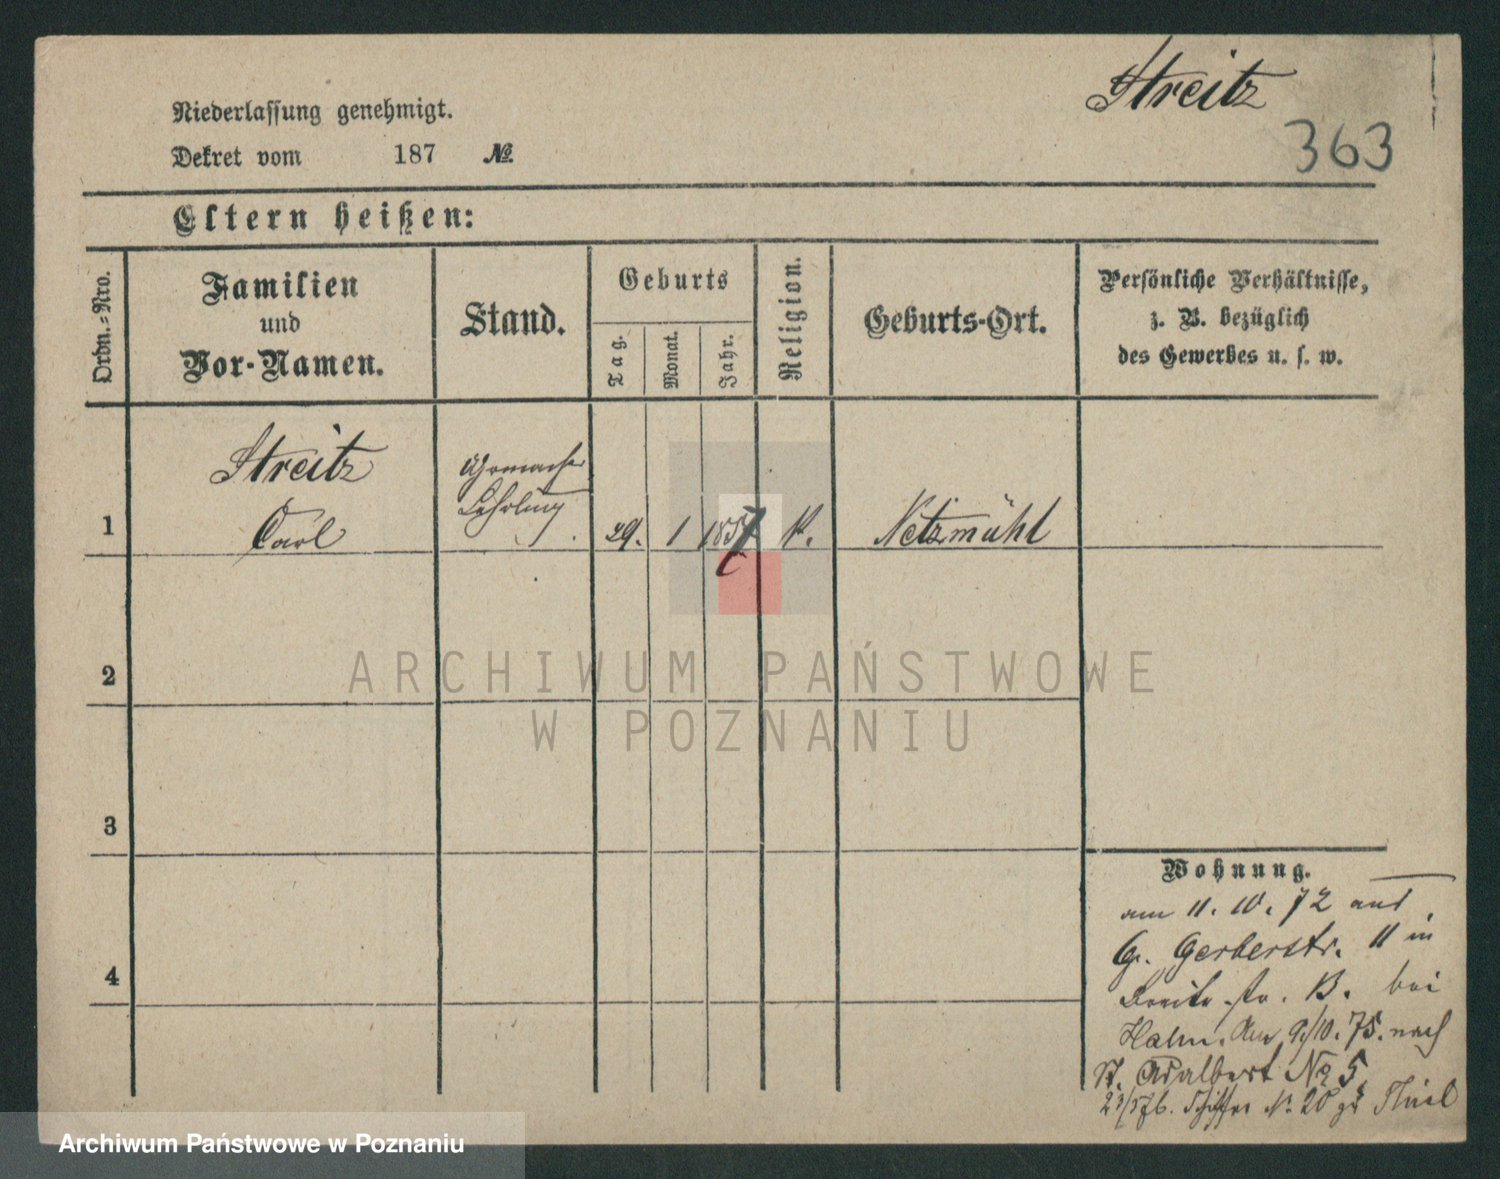 Streitz
363
Niederlassung genehmigt.
Dekret vom 187 №
Eltern heißen:
Ordn.-Nro.
Familien
und
Vor-Namen.
Stand.
Geburts
Tag.
Monat.
Jahr.
Religion.
Geburts-Ort.
Persönliche Verhältnisse,
z. B. bezüglich
des Gewerbes u. s. w.
1
Streitz
Carl
Uhrmacher
Lehrling
29. 1 1857 k.
Netzmühl
2
3
4
Wohnung.
am 11. 10. 72 aus
G. Gerberstr. 11 in
Breite str. 13. bei
Hahn. Am 9/10. 75. nach
St. Adalbert No 5
20 zu Thiel
ARCHIWUM PAŃSTWOWE
W POZNANIU
Archiwum Państwowe w Poznaniu